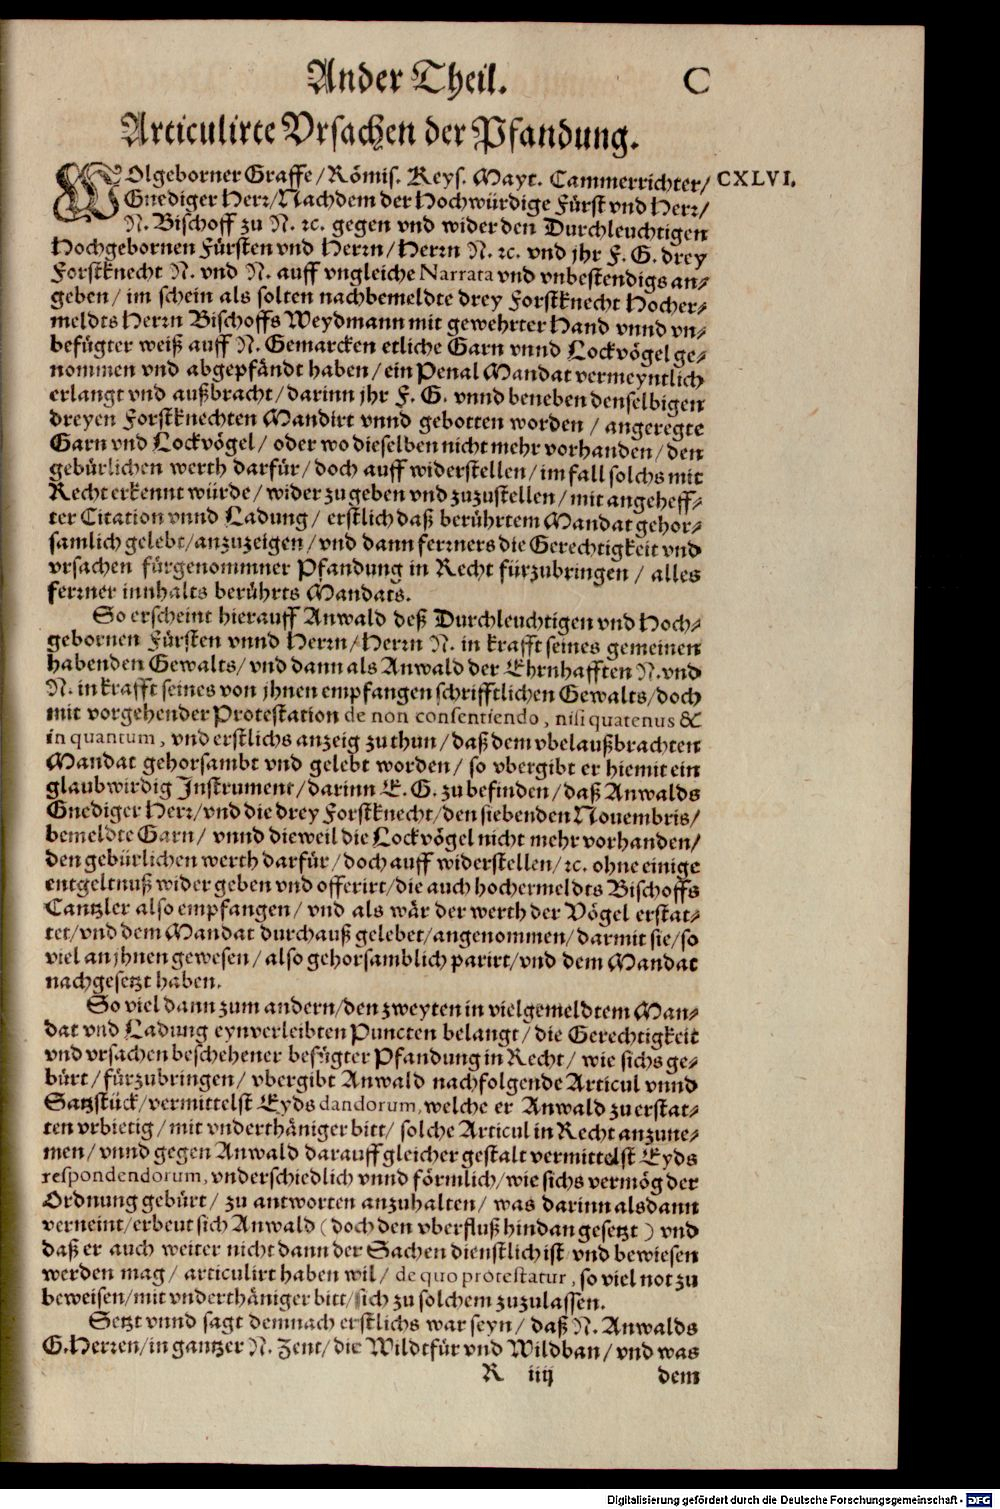 Ander Theil. C
Articulirte Vrsachen der Pfandung.
WOlgeborner Graffe/ Römis. Keys. Mayt. Cammerrichter/ CXLVI.
Gnediger Herr/ Nachdem der Hochwürdige Fürst vnd Herr/
N. Bischoff zu N. ꝛc. gegen vnd wider den Durchleuchtigen
Hochgebornen Fürsten vnd Herrn/ Herrn N. ꝛc. vnd jhr F. G. drey
Forstknecht N. vnd N. auff vngleiche Narrata vnd vnbestendigs an-
geben/ im schein als solten nachbemeldte drey Forstknecht Hocher-
meldts Herrn Bischoffs Weydmann mit gewehrter Hand vnnd vn-
befügter weiß auff N. Gemarcken etliche Garn vnnd Lockvögel ge-
nommen vnd abgepfändt haben/ ein Penal Mandat vermeyntlich
erlangt vnd außbracht/ darinn jhr F. G. vnnd beneben denselbigen
dreyen Forstknechten Mandirt vnnd gebotten worden/ angeregte
Garn vnd Lockvögel/ oder wo dieselben nicht mehr vorhanden/ den
gebürlichen werth darfür/ doch auff widerstellen/ im fall solchs mit
Recht erkennt würde/ wider zu geben vnd zuzustellen/ mit angeheff-
ter Citation vnnd Ladung/ erstlich daß berührtem Mandat gehor-
samlich gelebt/ anzuzeigen/ vnd dann ferrners die Gerechtigkeit vnd
vrsachen fürgenommner Pfandung in Recht fürzubringen/ alles
ferrner innhalts berührts Mandats.
So erscheint hierauff Anwald deß Durchleuchtigen vnd Hoch-
gebornen Fürsten vnnd Herrn/ Herrn N. in krafft seines gemeinen
habenden Gewalts/ vnd dann als Anwald der Ehrnhafften N. vnd
N. in krafft seines von jhnen empfangen schrifftlichen Gewalts/ doch
mit vorgehender Protestation de non consentiendo, nisi quatenus &
in quantum, vnd erstlichs anzeig zu thun/ daß dem vbelaußbrachten
Mandat gehorsambt vnd gelebt worden/ so vbergibt er hiemit ein
glaubwirdig Instrument/ darinn E. G. zu befinden/ daß Anwalds
Gnediger Herr/ vnd die drey Forstknecht/ den siebenden Nouembris/
bemeldte Garn/ vnnd dieweil die Lockvögel nicht mehr vorhanden/
den gebürlichen werth darfür/ doch auff widerstellen/ ꝛc. ohne einige
entgeltnuß wider geben vnd offerirt/ die auch hochermeldts Bischoffs
Cantzler also empfangen/ vnd als wär der werth der Vögel erstat-
tet/ vnd dem Mandat durchauß gelebet/ angenommen/ darmit sie/ so
viel an jhnen gewesen/ also gehorsamblich parirt/ vnd dem Mandat
nachgesetzt haben.
So viel dann zum andern/ den zweyten in vielgemeldtem Man-
dat vnd Ladung eynverleibten Puncten belangt/ die Gerechtigkeit
vnd vrsachen beschehener befügter Pfandung in Recht/ wie sichs ge-
bürt/ fürzubringen/ vbergibt Anwald nachfolgende Articul vnnd
Satzstück/ vermittelst Eyds dandorum, welche er Anwald zu erstat-
ten vrbietig/ mit vnderthäniger bitt/ solche Articul in Recht anzune-
men/ vnnd gegen Anwald darauff gleicher gestalt vermittelst Eyds
respondendorum, vnderschiedlich vnnd förmlich/ wie sichs vermög der
Ordnung gebürt/ zu antworten anzuhalten/ was darinn alsdann
verneint/ erbeut sich Anwald (doch den vberfluß hindan gesetzt) vnd
daß er auch weiter nicht dann der Sachen dienstlich ist vnd bewiesen
werden mag/ articulirt haben wil/ de quo protestatur, so viel not zu
beweisen/ mit vnderthäniger bitt/ sich zu solchem zuzulassen.
Setzt vnnd sagt demnach erstlichs war seyn/ daß N. Anwalds
G. Herren/ in gantzer N. Zent/ die Wildtfür vnd Wildban/ vnd was
R iiij dem
Digitalisierung gefördert durch die Deutsche Forschungsgemeinschaft - DFG